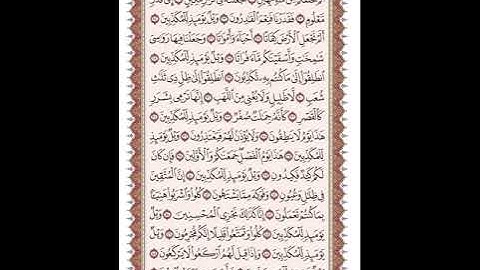 مَّعْلُومٍ ۝ فَقَدَرْنَا فَنِعْمَ ٱلْقَٰدِرُونَ ۝ وَيْلٌ يَوْمَئِذٍ لِّلْمُكَذِّبِينَ ۝
أَلَمْ نَجْعَلِ ٱلْأَرْضَ كِفَاتًا ۝ أَحْيَآءً وَأَمْوَٰتًا ۝ وَجَعَلْنَا فِيهَا رَوَٰسِىَ
شَٰمِخَٰتٍ وَأَسْقَيْنَٰكُم مَّآءً فُرَاتًا ۝ وَيْلٌ يَوْمَئِذٍ لِّلْمُكَذِّبِينَ ۝
ٱنطَلِقُوٓا۟ إِلَىٰ مَا كُنتُم بِهِۦ تُكَذِّبُونَ ۝ ٱنطَلِقُوٓا۟ إِلَىٰ ظِلٍّ ذِى ثَلَٰثِ
شُعَبٍ ۝ لَّا ظَلِيلٍ وَلَا يُغْنِى مِنَ ٱللَّهَبِ ۝ إِنَّهَا تَرْمِى بِشَرَرٍ
كَٱلْقَصْرِ ۝ كَأَنَّهُۥ جِمَٰلَتٌ صُفْرٌ ۝ وَيْلٌ يَوْمَئِذٍ لِّلْمُكَذِّبِينَ ۝
هَٰذَا يَوْمُ لَا يَنطِقُونَ ۝ وَلَا يُؤْذَنُ لَهُمْ فَيَعْتَذِرُونَ ۝ وَيْلٌ يَوْمَئِذٍ
لِّلْمُكَذِّبِينَ ۝ هَٰذَا يَوْمُ ٱلْفَصْلِ جَمَعْنَٰكُمْ وَٱلْأَوَّلِينَ ۝ فَإِن كَانَ
لَكُمْ كَيْدٌ فَكِيدُونِ ۝ وَيْلٌ يَوْمَئِذٍ لِّلْمُكَذِّبِينَ ۝ إِنَّ ٱلْمُتَّقِينَ
فِى ظِلَٰلٍ وَعُيُونٍ ۝ وَفَوَٰكِهَ مِمَّا يَشْتَهُونَ ۝ كُلُوا۟ وَٱشْرَبُوا۟ هَنِيٓـًٔۢا
بِمَا كُنتُمْ تَعْمَلُونَ ۝ إِنَّا كَذَٰلِكَ نَجْزِى ٱلْمُحْسِنِينَ ۝ وَيْلٌ
يَوْمَئِذٍ لِّلْمُكَذِّبِينَ ۝ كُلُوا۟ وَتَمَتَّعُوا۟ قَلِيلًا إِنَّكُم مُّجْرِمُونَ ۝ وَيْلٌ
يَوْمَئِذٍ لِّلْمُكَذِّبِينَ ۝ وَإِذَا قِيلَ لَهُمُ ٱرْكَعُوا۟ لَا يَرْكَعُونَ ۝